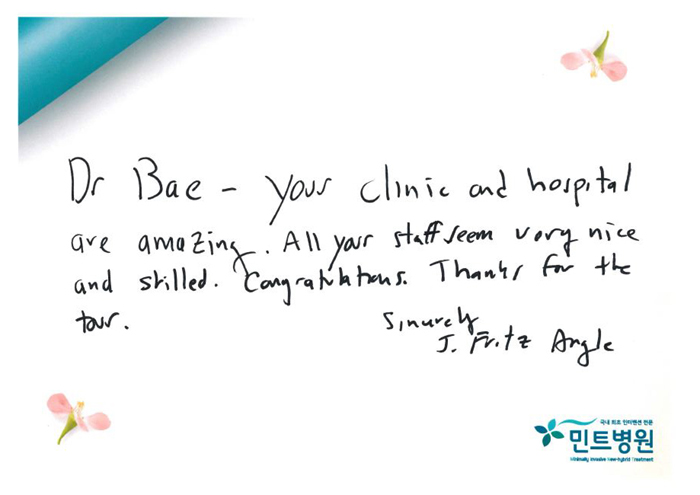 Dr Bae - your clinic and hospital
are amazing. All your staff seem very nice
and skilled. Congratulations. Thanks for the
tour.
Sincerely
J. Fritz Angle
국내 최초 인터벤션 전문
민트병원
Minimally Invasive New-hybrid Treatment